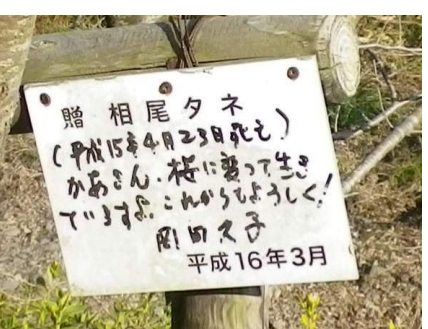 贈 相尾タネ
(平成15年4月23日死亡)
かあさん、桜に変って生き
ていますよ。これからもよろしく!
岡田久子
平成16年3月